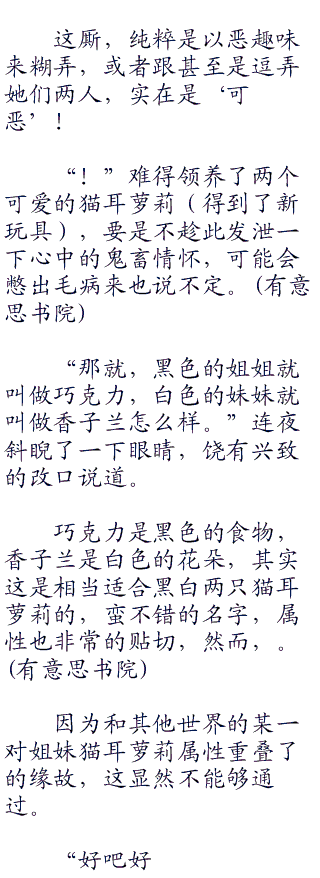 这厮，纯粹是以恶趣味
来糊弄，或者跟甚至是逗弄
她们两人，实在是‘可
恶’！
“！”难得领养了两个
可爱的猫耳萝莉（得到了新
玩具），要是不趁此发泄一
下心中的鬼畜情怀，可能会
憋出毛病来也说不定。(有意
思书院)
“那就，黑色的姐姐就
叫做巧克力，白色的妹妹就
叫做香子兰怎么样。”连夜
斜睨了一下眼睛，饶有兴致
的改口说道。
巧克力是黑色的食物，
香子兰是白色的花朵，其实
这是相当适合黑白两只猫耳
萝莉的，蛮不错的名字，属
性也非常的贴切，然而，。
(有意思书院)
因为和其他世界的某一
对姐妹猫耳萝莉属性重叠了
的缘故，这显然不能够通
过。
“好吧好